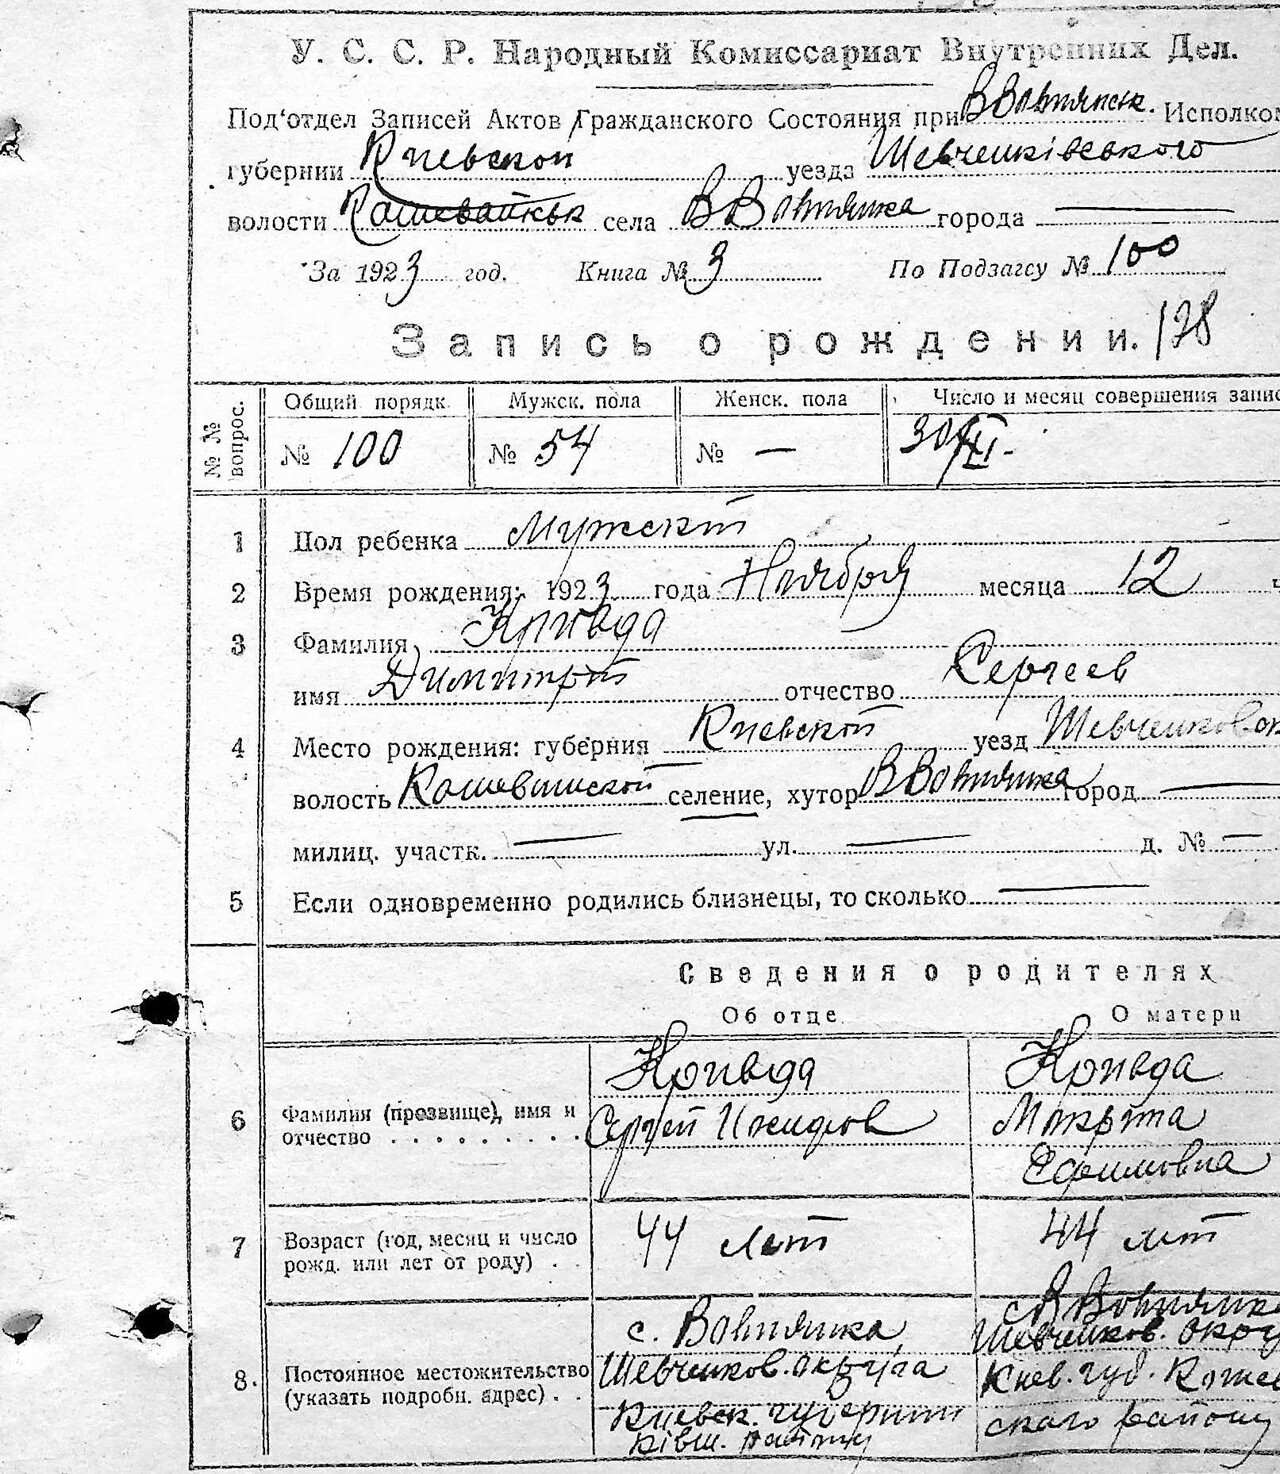 У. С. С. Р. Народный Комиссариат Внутренних Дел.
Под'отдел Записей Актов Гражданского Состояния при ВВовнянск. Исполком
губернии Киевской уезда Шевченківського
волости села ВВовнянка города —
За 1923 год. Книга № 3 По Подзагсу № 100
Запись о рождении. 128
№ № вопрос. Общий порядк. Мужск. пола Женск. пола Число и месяц совершения запис
№ 100 № 54 № — 30/XI.
1 Пол ребенка Мужскій
2 Время рождения: 1923 года Ноября месяца 12 ч
3 Фамилия Кривда
имя Димитрій отчество Сергеев
4 Место рождения: губерния Киевской уезд Шевченковск
волость селение, хутор ВВовнянка город —
милиц. участк. — ул. — д. № —
5 Если одновременно родились близнецы, то сколько —
Сведения о родителях
Об отце О матери
6 Фамилия (прозвище), имя и отчество . . . . . . . . . .
Кривда Кривда
Сергей Никифоров Мокрина
Ефимовна
7 Возраст (год, месяц и число рожд. или лет от роду) . .
44 лет 44 лет
8. Постоянное местожительство (указать подробн. адрес) . .
с. Вовнянка с. ВВовнянка
Шевченков. округа Шевченков. окру
Киевск. губернии Киев. губ.
району ского району